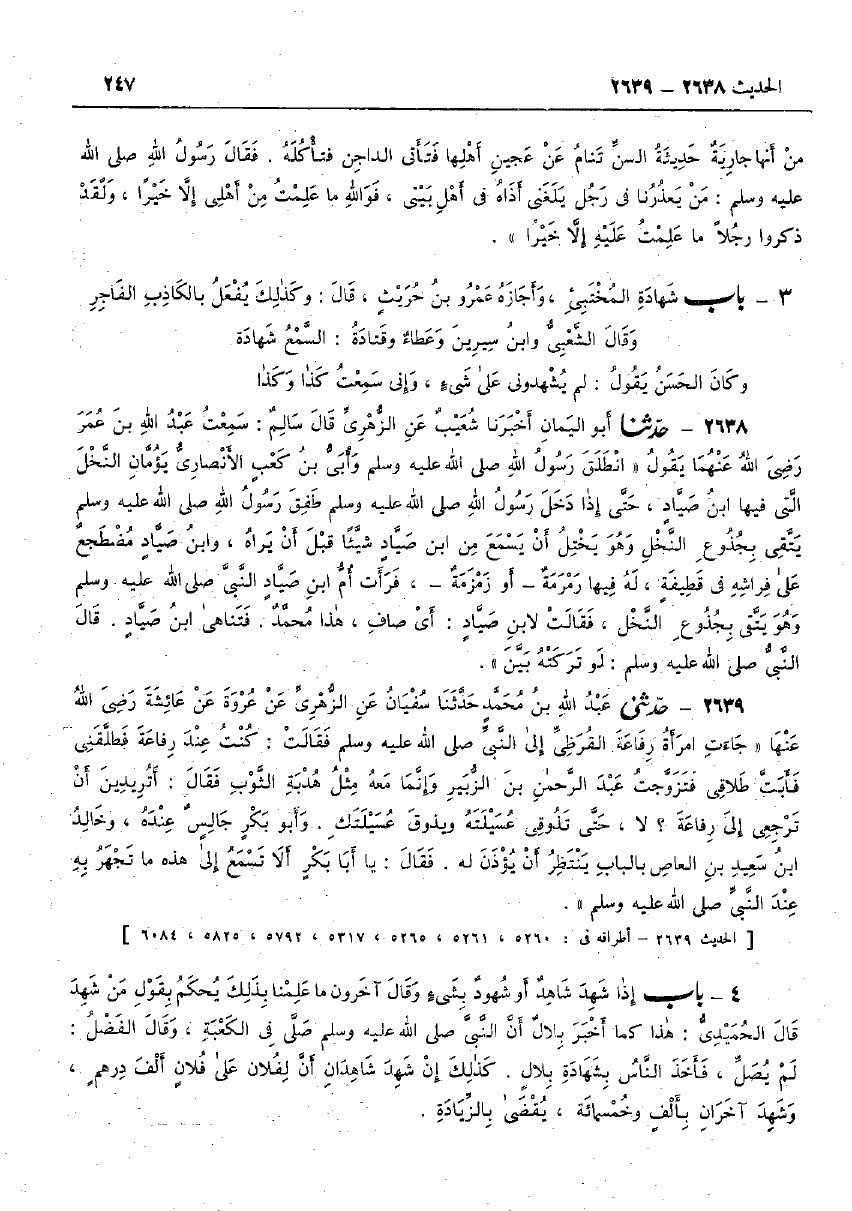 الحديث ٢٦٣٨ – ٢٦٣٩
٢٤٧
منْ أنها جاريَةٌ حَدِيثَةُ السنِّ تَنامُ عَنْ عَجينِ أَهْلِها فَتَأتى الداجن فتأْكُلَهُ . فَقَالَ رَسُولُ اللهِ صلى الله
عليه وسلم : مَنْ يَعذُرُنا فى رَجُلٍ بَلَغَنى أذَاهُ فى أهْلِ بَيْتى ، فَوَاللهِ ما عَلِمْتُ مِنْ أهْلِى إلَّا خَيْرًا ، ولَقَدْ
ذكروا رجُلاً ما عَلِمْتُ عَلَيْهِ إلَّا خَيْرًا » .
٣ – باب شَهادَةِ المُخْتَبِئِ ، وَأَجازَهُ عَمْرُو بنُ حُرَيْثٍ ، قَالَ : وكَذٰلِكَ يُفْعَلُ بالكَاذِبِ الفَاجِرِ
وَقَالَ الشَّعْبِىُّ وابنُ سِيرِينَ وَعَطاءٌ وقَتادَةُ : السَّمْعُ شَهادَة
وكَانَ الحَسَنُ يَقُولُ : لم يُشْهِدونى عَلىٰ شَىءٍ ، وَإنى سَمِعْتُ كَذٰا وَكَذٰا
٢٦٣٨ – حدّثنا أبو اليَمانِ أخْبَرَنا شُعَيْبٌ عَنِ الزُّهْرِىِّ قَالَ سَالِمٌ : سَمِعْتُ عَبْدَ اللهِ بنَ عُمَرَ
رَضِىَ اللهُ عَنْهُما يَقُولُ « انْطَلَقَ رَسُولُ اللهِ صلى الله عليه وسلم وَأُبَىُّ بنُ كَعْبٍ الأَنْصارِىُّ يَؤُمَّانِ النَّخْلَ
الَّتى فيها ابنُ صَيَّادٍ ، حَتَّى إذَا دَخَلَ رَسُولُ اللهِ صلى الله عليه وسلم طَفِقَ رَسُولُ اللهِ صلى الله عليه وسلم
يَتَّقِى بِجُذوعِ النَّخْلِ وَهُوَ يَخْتِلُ أنْ يَسْمَعَ مِن ابن صَيَّادٍ شيْئًا قبْلَ أنْ يَراهُ ، وابنُ صَيَّادٍ مُضْطَجِعٌ
عَلىٰ فِراشِهِ فى قَطِيفَةٍ ، لَهُ فِيها رَمْرَمَةٌ – أو زَمْزَمَةٌ – ، فَرَأت أُمُّ ابنِ صَيَّادٍ النَّبىَّ صلى الله عليه وسلم
وَهُوَ يَتَّقى بِجُذُوعِ النَّخْلِ ، فَقَالَتْ لابنِ صَيَّاد : أىْ صافِ ، هٰذا مُحمَّدٌ . فَتَناهىٰ ابنُ صَيَّادٍ . قَالَ
النَّبىُّ صلى الله عليه وسلم : لَو تَرَكَتْهُ بَيَّنَ » .
٢٦٣٩ – حدّثنى عَبْدُ اللهِ بنُ مُحَمَّدٍ حَدَّثَنَا سُفْيَانُ عَنِ الزُّهْرِىِّ عَنْ عُرْوَةَ عَنْ عَائِشَةَ رَضِىَ اللهُ
عَنْهَا « جَاءَتِ امرَأةُ رِفَاعَةَ القُرَظِىِّ إلىٰ النَّبىِّ صلى الله عليه وسلم فَقَالَتْ : كُنْتُ عِنْدَ رِفاعَةَ فَطلَّقَنِى
فَأبَتَّ طَلاقِى فَتَزَوَّجتُ عَبْدَ الرَّحمٰنِ بنَ الزُّبَيرِ وَإنَّمَا مَعهُ مِثْلُ هُدْبَةِ الثَّوْبِ فَقَالَ : أتُرِيدِينَ أنْ
تَرْجِعى إلىَ رِفاعَةَ ؟ لا ، حَتَّى تَذُوقِى عُسَيْلَتَهُ ويذوقَ عُسَيْلَتَكِ . وَأبو بَكْرٍ جَالِسٌ عِنْدَهُ ، وخَالِدُ
ابنُ سَعِيدِ بنِ العاصِ بالبابِ يَنْتَظِرُ أنْ يُؤْذَنَ له . فَقَالَ : يا أبَا بَكْرٍ ألَا تَسْمَعُ إلىٰ هذه ما تَجْهَرُ بِهِ
عِنْدَ النَّبىِّ صلى الله عليه وسلم » .
[ الحديث ٢٦٣٩ – أطرافه فى : ٥٢٦٠ ، ٥٢٦١ ، ٥٢٦٥ ، ٥٣١٧ ، ٥٧٩٢ ، ٥٨٢٥ ، ٦٠٨٤ ]
٤ – باب إذَا شَهِدَ شَاهِدٌ أو شُهودٌ بِشَىءٍ وَقَالَ آخَرون ما عَلِمْنا بِذَلِكَ يُحكَمُ بِقَوْلِ مَنْ شَهِدَ
قَالَ الحُمَيْدِىُّ : هٰذا كما أخْبَرَ بِلالٌ أنَّ النَّبىَّ صلى الله عليه وسلم صَلَّى فى الكَعْبَةِ ، وَقَالَ الفَضْلُ :
لَمْ يُصَلِّ ، فَأخَذَ النَّاسُ بِشَهادَةِ بِلالٍ . كَذٰلِكَ إنْ شَهِدَ شاهِدَانِ أنَّ لِفُلان عَلىٰ فُلانٍ ألْفَ دِرهمٍ ،
وَشَهِدَ آخَرَانِ بِألْفٍ وخَمْسمِائَة ، يُقْضَىٰ بِالزِّيَادَةِ .